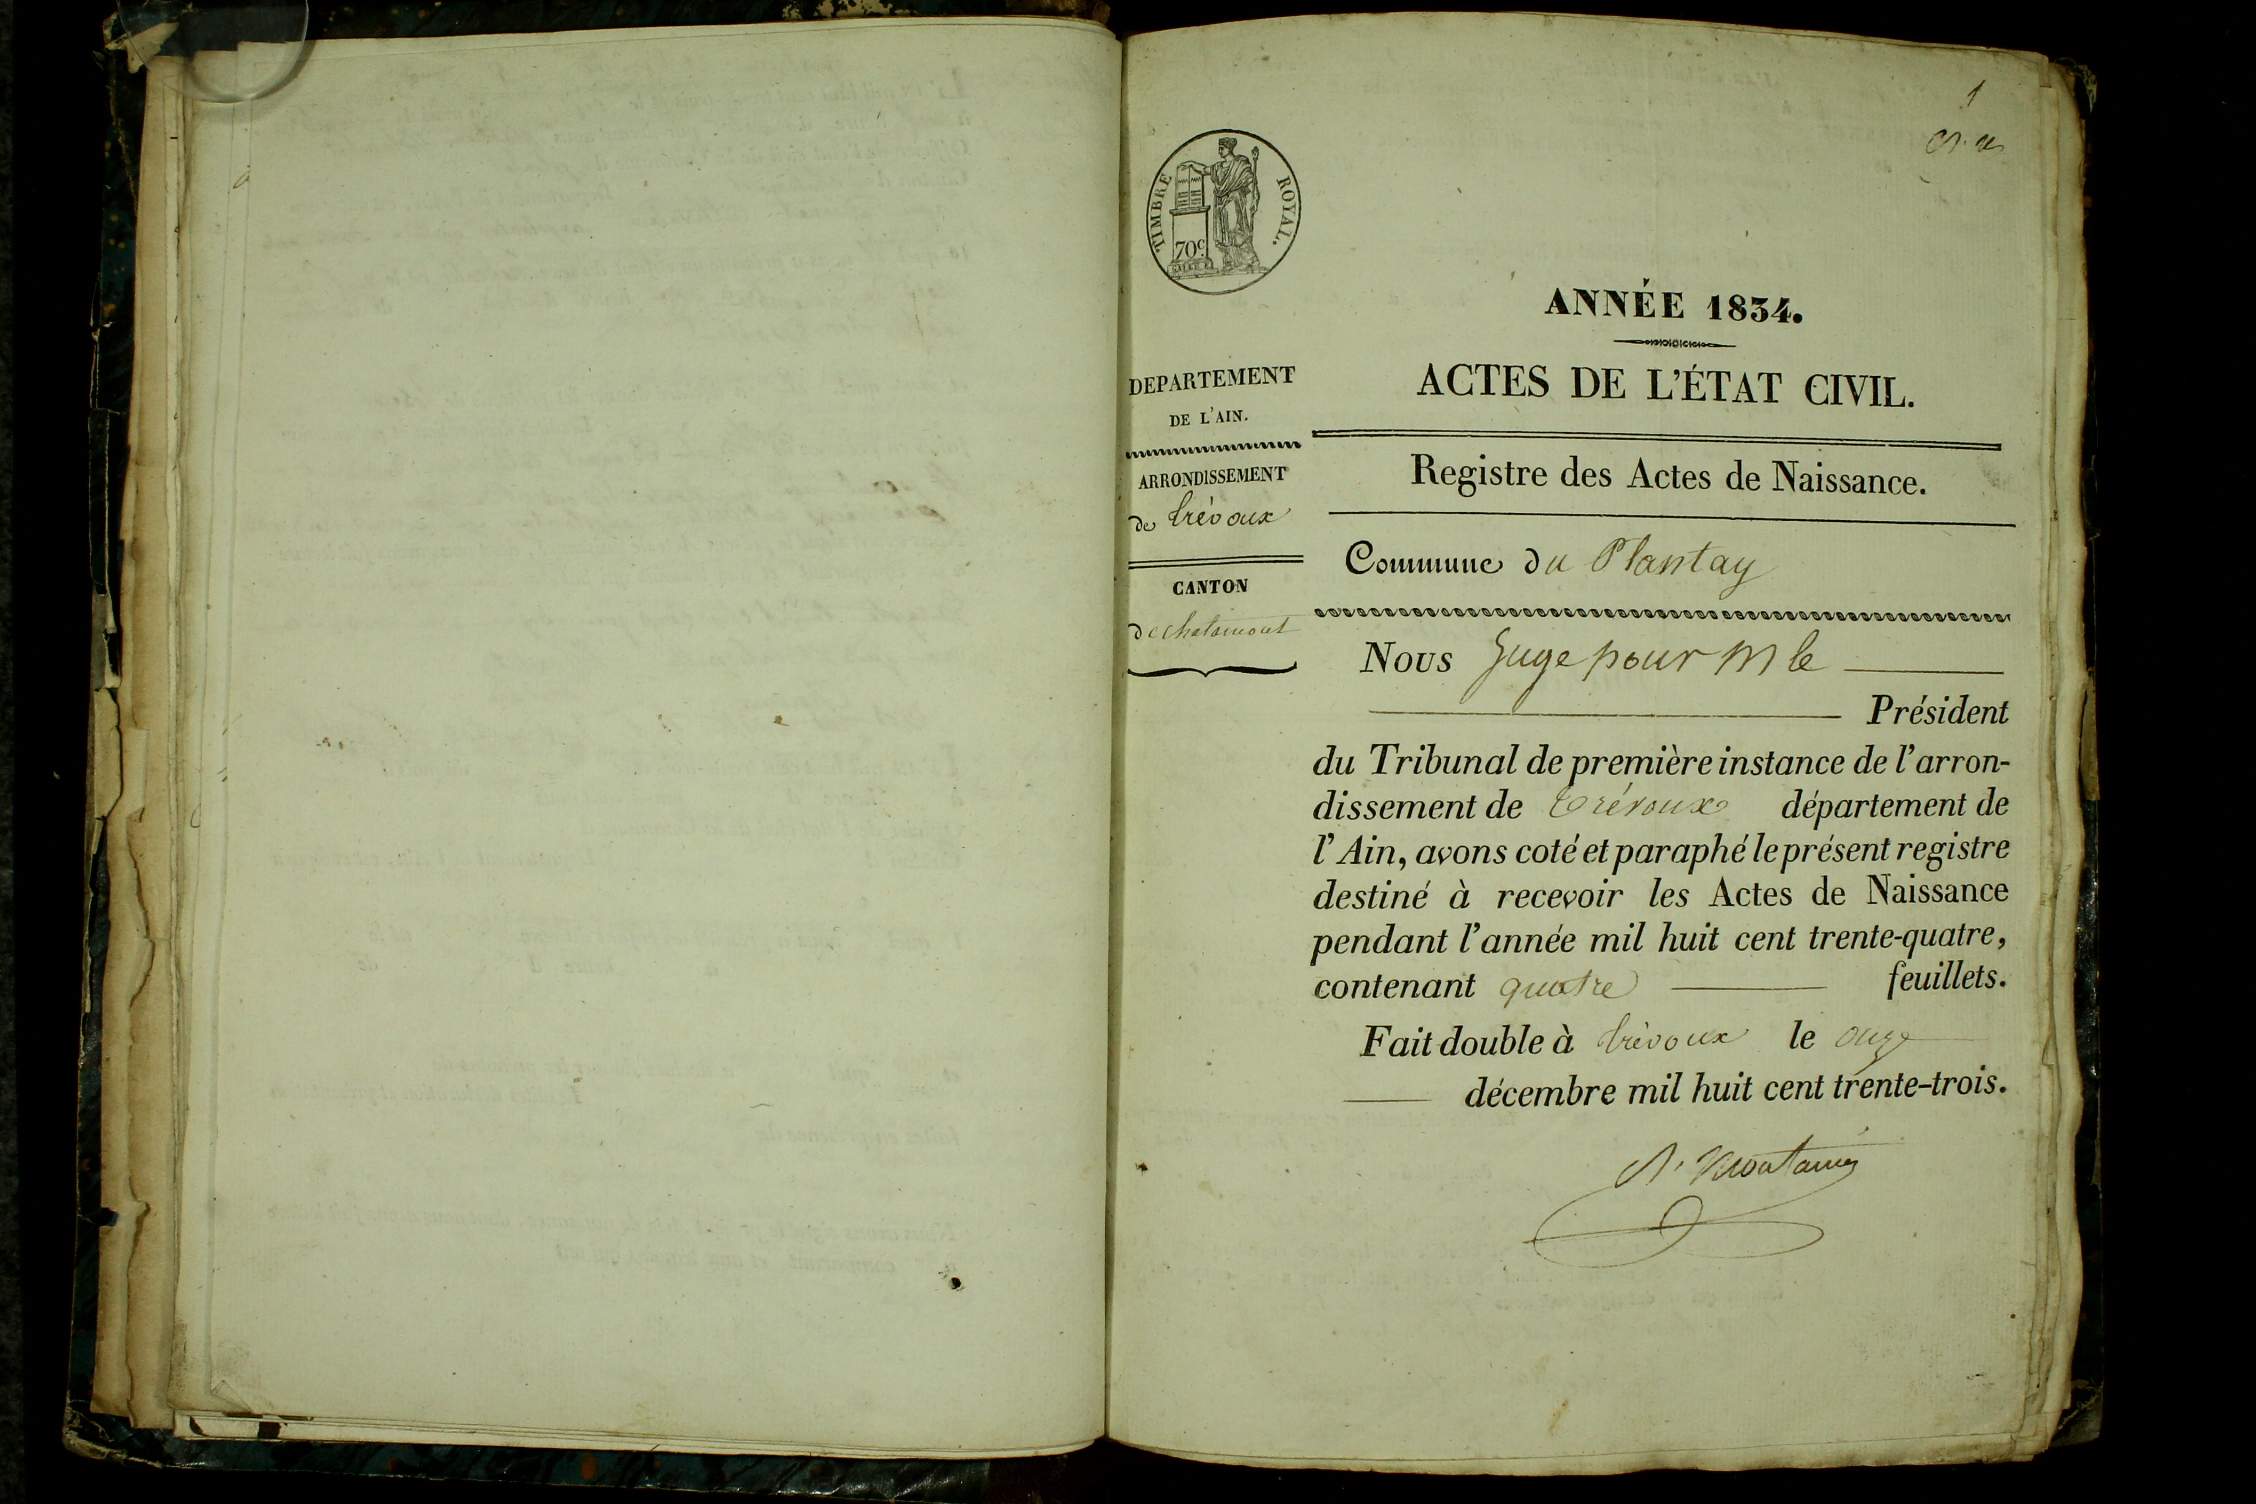 1
TIMBRE ROYAL.
70c.
ANNÉE 1834.
ACTES DE L'ÉTAT CIVIL.
Registre des Actes de Naissance.
DEPARTEMENT
DE L'AIN.
ARRONDISSEMENT
de Trévoux
CANTON
de chalamont
Commune du Plantay
Nous Juge pour M le
Président
du Tribunal de première instance de l'arron-
dissement de Trévoux département de
l'Ain, avons coté et paraphé le présent registre
destiné à recevoir les Actes de Naissance
pendant l'année mil huit cent trente-quatre,
contenant quatre feuillets.
Fait double à Trévoux le onze
décembre mil huit cent trente-trois.